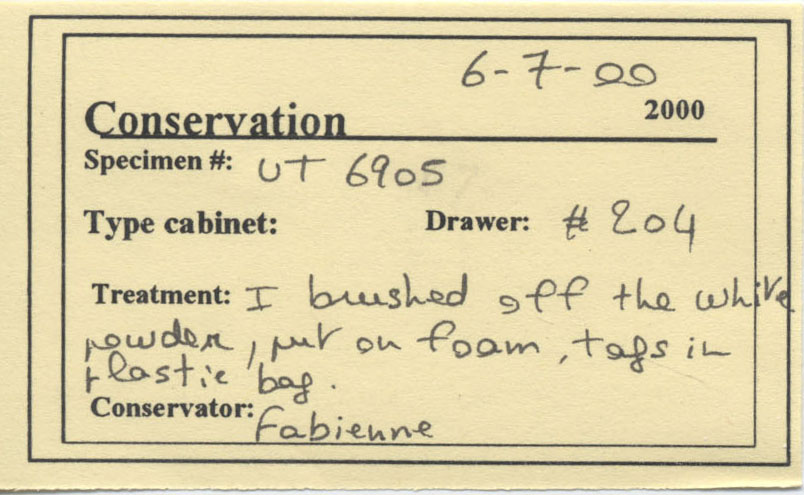 6-7-00
Conservation 2000
Specimen #: UT 6905
Type cabinet: Drawer: # 204
Treatment: I brushed off the white
powder, put on foam, tags in
plastic bag.
Conservator: Fabienne